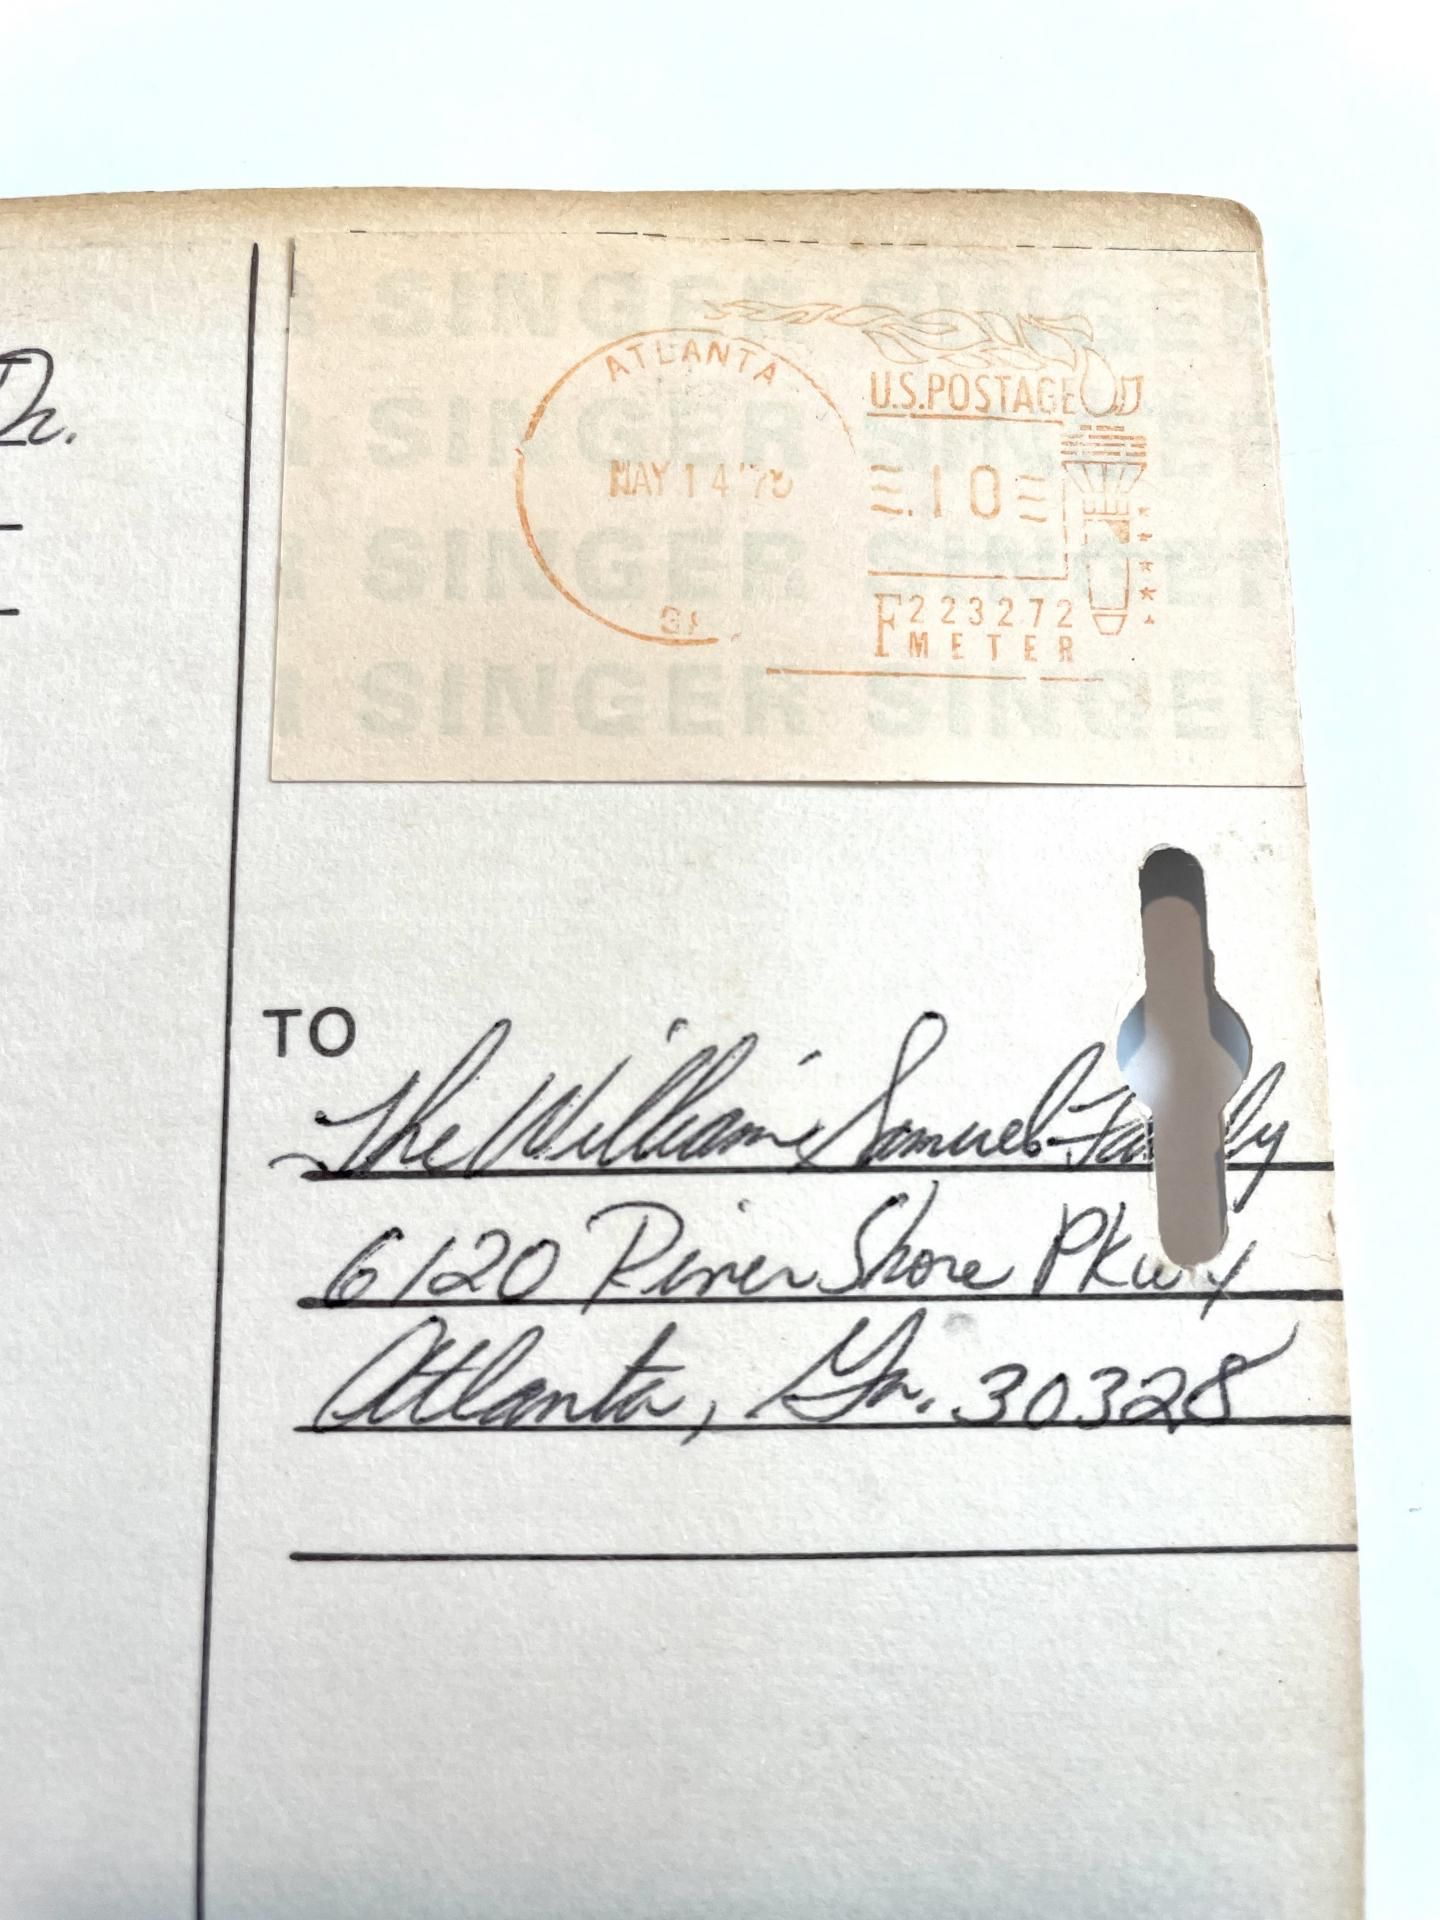 SINGER SINGER
ATLANTA
U.S.POSTAGE
Dr.
SINGER
MAY 14
.10
SINGER SINGER
F 223272
METER
SINGER SINGER
TO
The William Samuel Family
6120 River Shore Pkwy
Atlanta, Ga. 30328